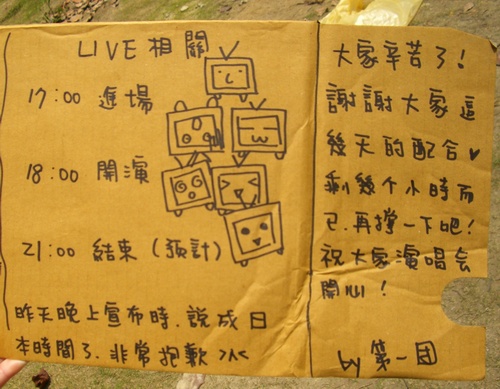 LIVE相關
17:00 進場
18:00 開演
21:00 結束（預計）
昨天晚上宣布時.說成日
本時間了.非常抱歉
大家辛苦了!
謝謝大家這
幾天的配合
剩幾个小時而
已.再撐一下吧!
祝大家演唱会
開心!
by 第一团